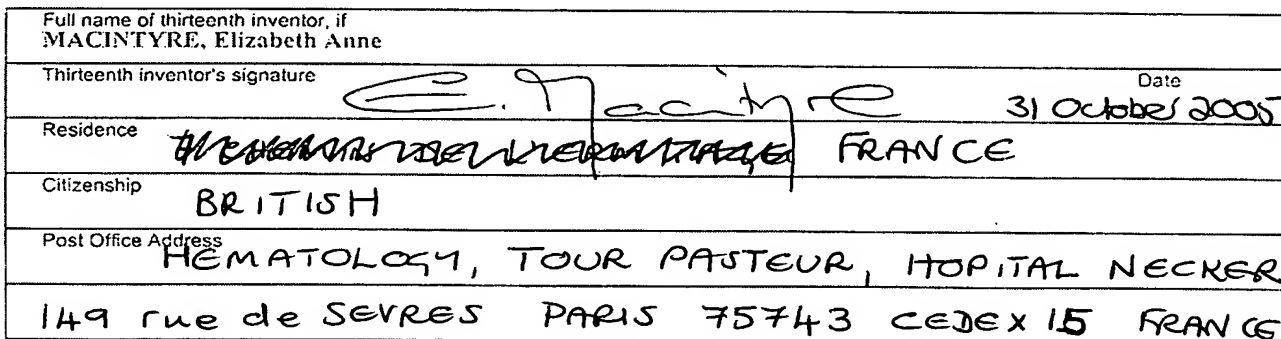 Full name of thirteenth inventor, if
MACINTYRE, Elizabeth Anne
Thirteenth inventor's signature E. Macintyre Date 31 October 2005
Residence FRANCE
Citizenship BRITISH
Post Office Address HEMATOLOGY, TOUR PASTEUR, HOPITAL NECKER
149 rue de SEVRES PARIS 75743 CEDEX 15 FRANCE